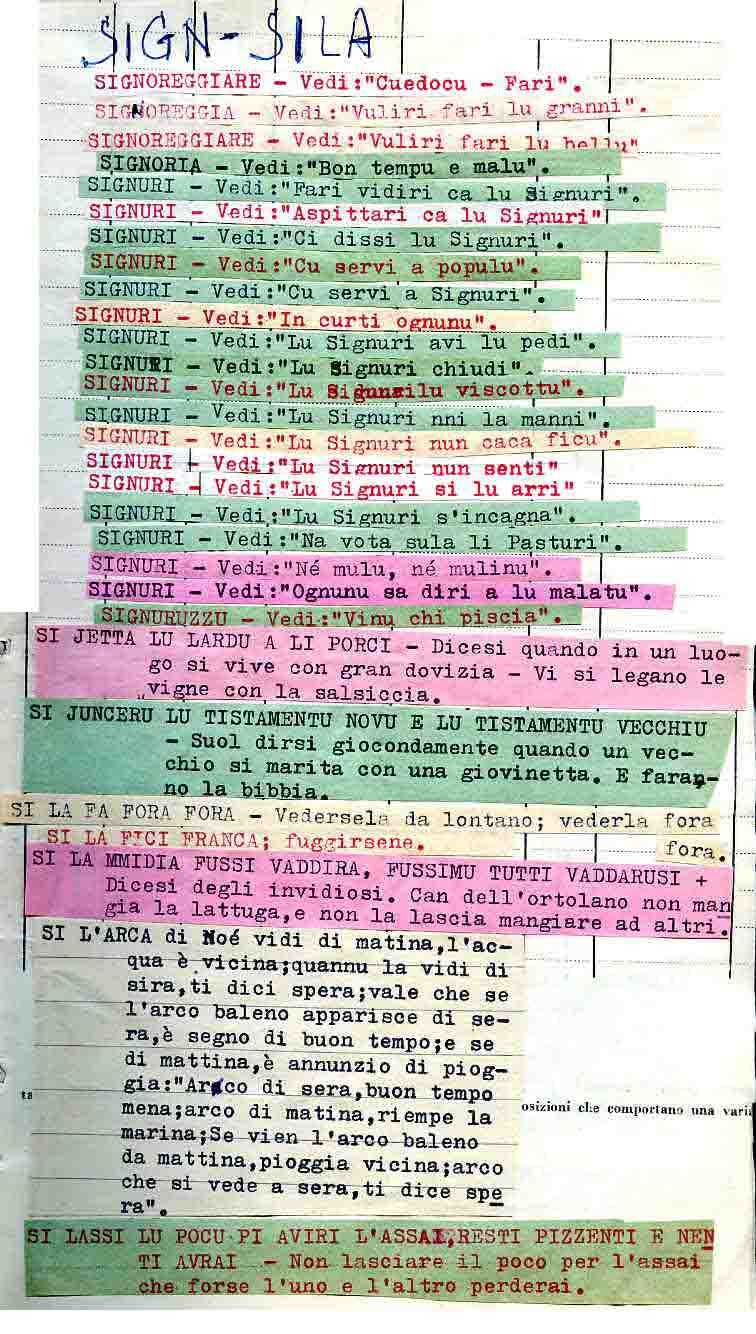 SIGN-SILA
SIGNOREGGIARE - Vedi:"Cuedocu - Fari".
SIGNOREGGIA - Vedi:"Vuliri fari lu granni".
SIGNOREGGIARE - Vedi:"Vuliri fari lu bellu"
SIGNORIA - Vedi:"Bon tempu e malu".
SIGNURI - Vedi:"Fari vidiri ca lu Signuri".
SIGNURI - Vedi:"Aspittari ca lu Signuri"
SIGNURI - Vedi:"Ci dissi lu Signuri".
SIGNURI - Vedi:"Cu servi a populu".
SIGNURI - Vedi:"Cu servi a Signuri".
SIGNURI - Vedi:"In curti ognunu".
SIGNURI - Vedi:"Lu Signuri avi lu pedi".
SIGNURI - Vedi:"Lu Signuri chiudi".
SIGNURI - Vedi:"Lu viscottu".
SIGNURI - Vedi:"Lu Signuri nni la manni".
SIGNURI - Vedi:"Lu Signuri nun caca ficu".
SIGNURI - Vedi:"Lu Signuri nun senti"
SIGNURI - Vedi:"Lu Signuri si lu arri"
SIGNURI - Vedi:"Lu Signuri s'incagna".
SIGNURI - Vedi:"Na vota sula li Pasturi".
SIGNURI - Vedi:"Né mulu, né mulinu".
SIGNURI - Vedi:"Ognunu sa diri a lu malatu".
SIGNURUZZU - Vedi:"Vinu chi piscia".
SI JETTA LU LARDU A LI PORCI - Dicesi quando in un luo-
go si vive con gran dovizia - Vi si legano le
vigne con la salsiccia.
SI JUNCERU LU TISTAMENTU NOVU E LU TISTAMENTU VECCHIU
- Suol dirsi giocondamente quando un vec-
chio si marita con una giovinetta. E faran-
no la bibbia.
SI LA FA FORA FORA - Vedersela da lontano; vederla fora
fora.
SI LA FICI FRANCA; fuggirsene.
SI LA MMIDIA FUSSI VADDIRA, FUSSIMU TUTTI VADDARUSI +
Dicesi degli invidiosi. Can dell'ortolano non man
gia la lattuga,e non la lascia mangiare ad altri.
SI L'ARCA di Noé vidi di matina,l'ac-
qua è vicina;quannu la vidi di
sira,ti dici spera;vale che se
l'arco baleno apparisce di se-
ra,è segno di buon tempo;e se
di mattina,è annunzio di piog-
gia:"Arco di sera,buon tempo
mena;arco di matina,riempe la
marina;Se vien l'arco baleno
da mattina,pioggia vicina;arco
che si vede a sera,ti dice spe
ra".
ta
osizioni che comportano una vari
SI LASSI LU POCU PI AVIRI L'ASSAI,RESTI PIZZENTI E NEN
TI AVRAI - Non lasciare il poco per l'assai
che forse l'uno e l'altro perderai.